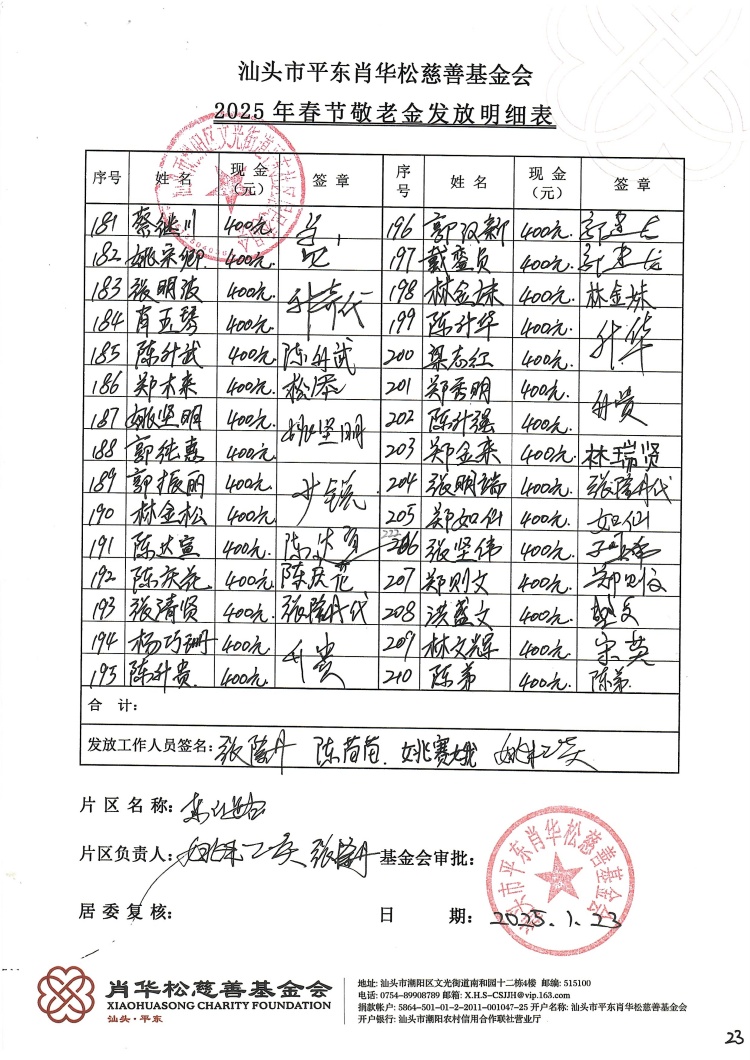 汕头市平东肖华松慈善基金会
2025年春节敬老金发放明细表
序号 姓名 现金（元） 签章 序号 姓名 现金（元） 签章
181 蔡继川 400元 196 郭汉新 400元
182 姚宗卿 400元 197 戴蛮贞 400元
183 张明波 400元 198 林金妹 400元 林金妹
184 肖玉琴 400元 升奇代 199 陈升华 400元 升华
185 陈升武 400元 陈升武 200 梁志红 400元
186 郑木来 400元 松添 201 郑秀明 400元
187 姚坚明 400元 姚坚明 202 陈升强 400元 升贵
188 郭纯惠 400元 203 郑金来 400元 林瑞贤
189 郭振丽 400元 204 张明端 400元 张隆丹代
190 林金松 400元 205 郑如仙 400元 如仙
191 陈达宣 400元 222 206 张坚伟 400元
192 陈庆花 400元 陈庆花 207 郑则文 400元 郑则文
193 张清贤 400元 张隆丹代 208 洪盛文 400元
194 杨巧珊 400元 209 林文辉 400元 宋英
195 陈升贵 400元 升贵 210 陈弟 400元 陈弟
合 计：
发放工作人员签名： 张隆丹 陈苗苗 姚赛娥
片区名称：
片区负责人： 张隆丹 基金会审批：
汕头市平东肖华松慈善基金会
居委复核： 日 期： 2025.1.23
肖华松慈善基金会
XIAOHUASONG CHARITY FOUNDATION
汕头·平东
地址: 汕头市潮阳区文光街道南和园十二栋4楼 邮编: 515100
电话: 0754-89908789 邮箱: X.H.S-CSJJH@vip.163.com
捐款帐户: 5864-501-01-2-2011-001047-25 开户名称: 汕头市平东肖华松慈善基金会
开户银行: 汕头市潮阳农村信用合作联社营业厅
23